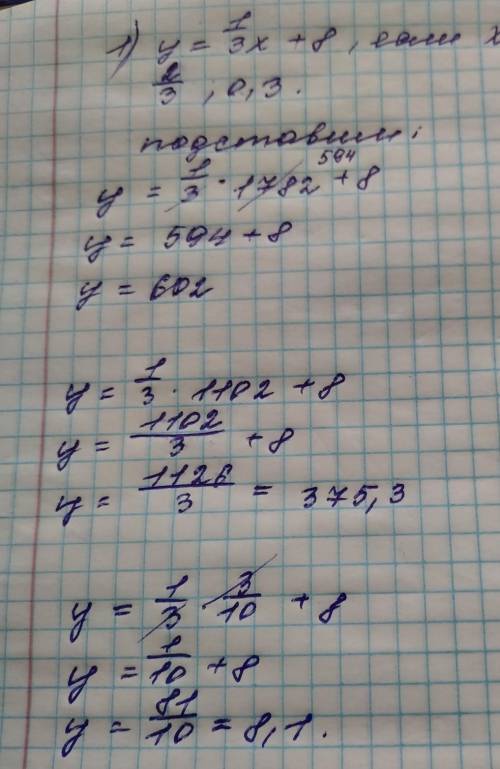 1) y = 1/3 x + 8, если x
2/3 ; 0,3.
подставим;
y = 1/3 · 1782 594 + 8
y = 594 + 8
y = 602
y = 1/3 · 1102 + 8
y = 1102/3 + 8
y = 1126/3 = 375,3
y = 1/3 · 3/10 + 8
y = 1/10 + 8
y = 81/10 = 8,1.